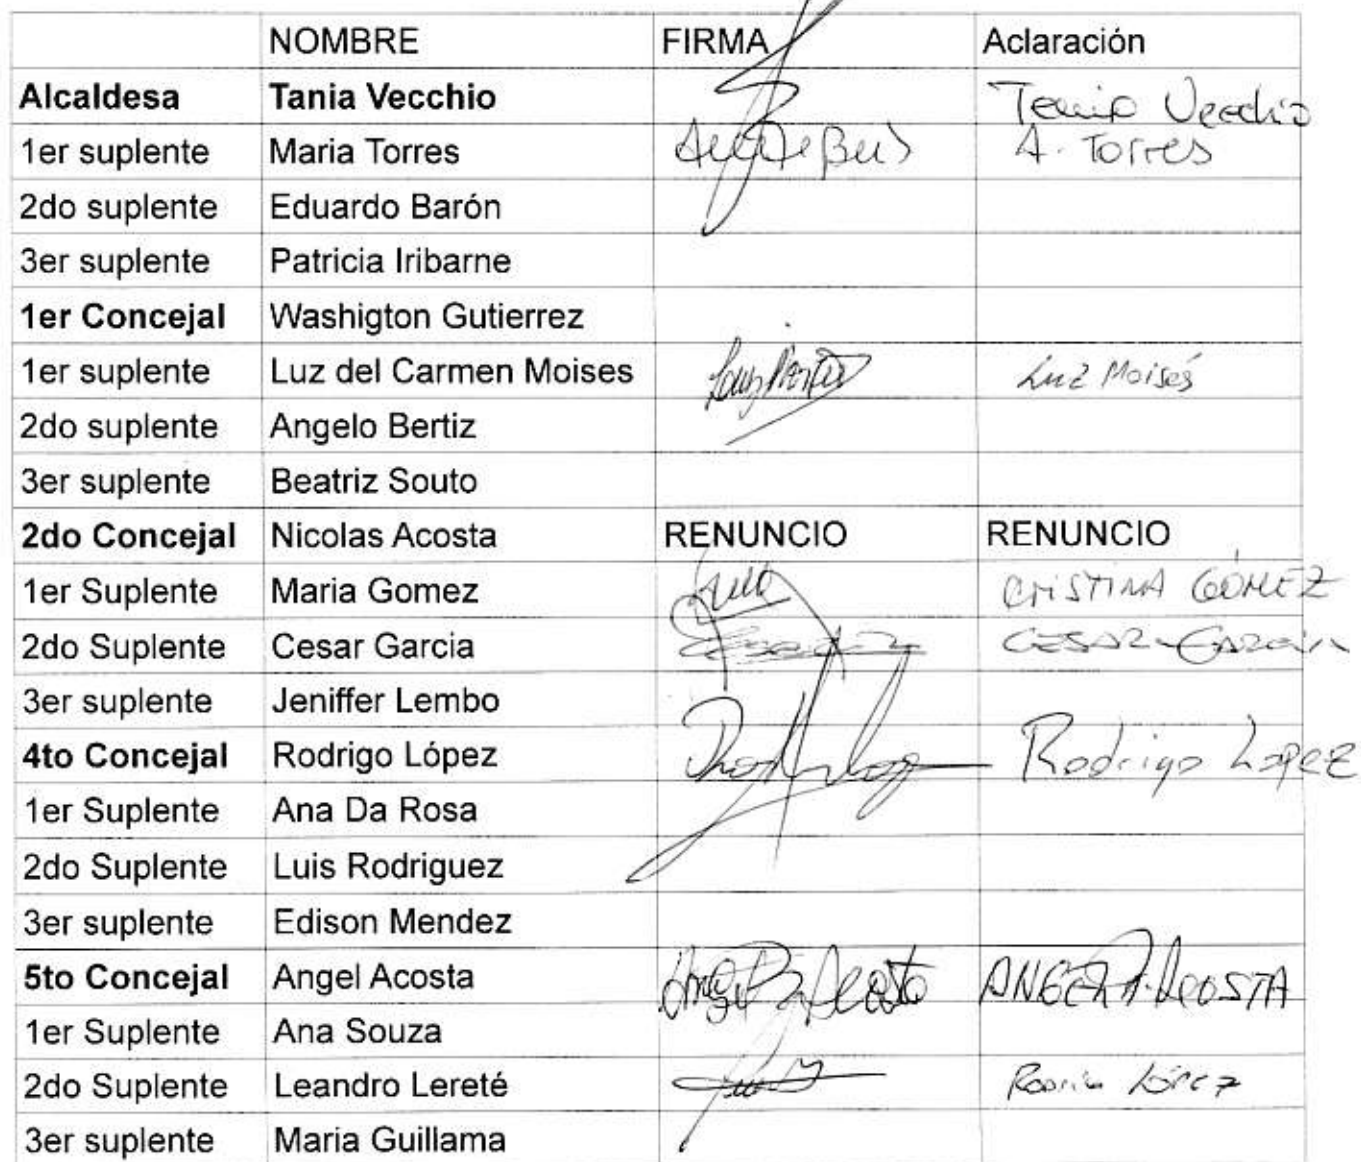 NOMBRE FIRMA Aclaración
Alcaldesa Tania Vecchio Tania Vecchio
1er suplente Maria Torres A. Torres
2do suplente Eduardo Barón
3er suplente Patricia Iribarne
1er Concejal Washigton Gutierrez
1er suplente Luz del Carmen Moises Luz Moisés
2do suplente Angelo Bertiz
3er suplente Beatriz Souto
2do Concejal Nicolas Acosta RENUNCIO RENUNCIO
1er Suplente Maria Gomez CRISTINA GÓMEZ
2do Suplente Cesar Garcia CESAR GARCIA
3er suplente Jeniffer Lembo
4to Concejal Rodrigo López Rodrigo Lopez
1er Suplente Ana Da Rosa
2do Suplente Luis Rodriguez
3er suplente Edison Mendez
5to Concejal Angel Acosta ANGEL A. ACOSTA
1er Suplente Ana Souza
2do Suplente Leandro Lereté López
3er suplente Maria Guillama